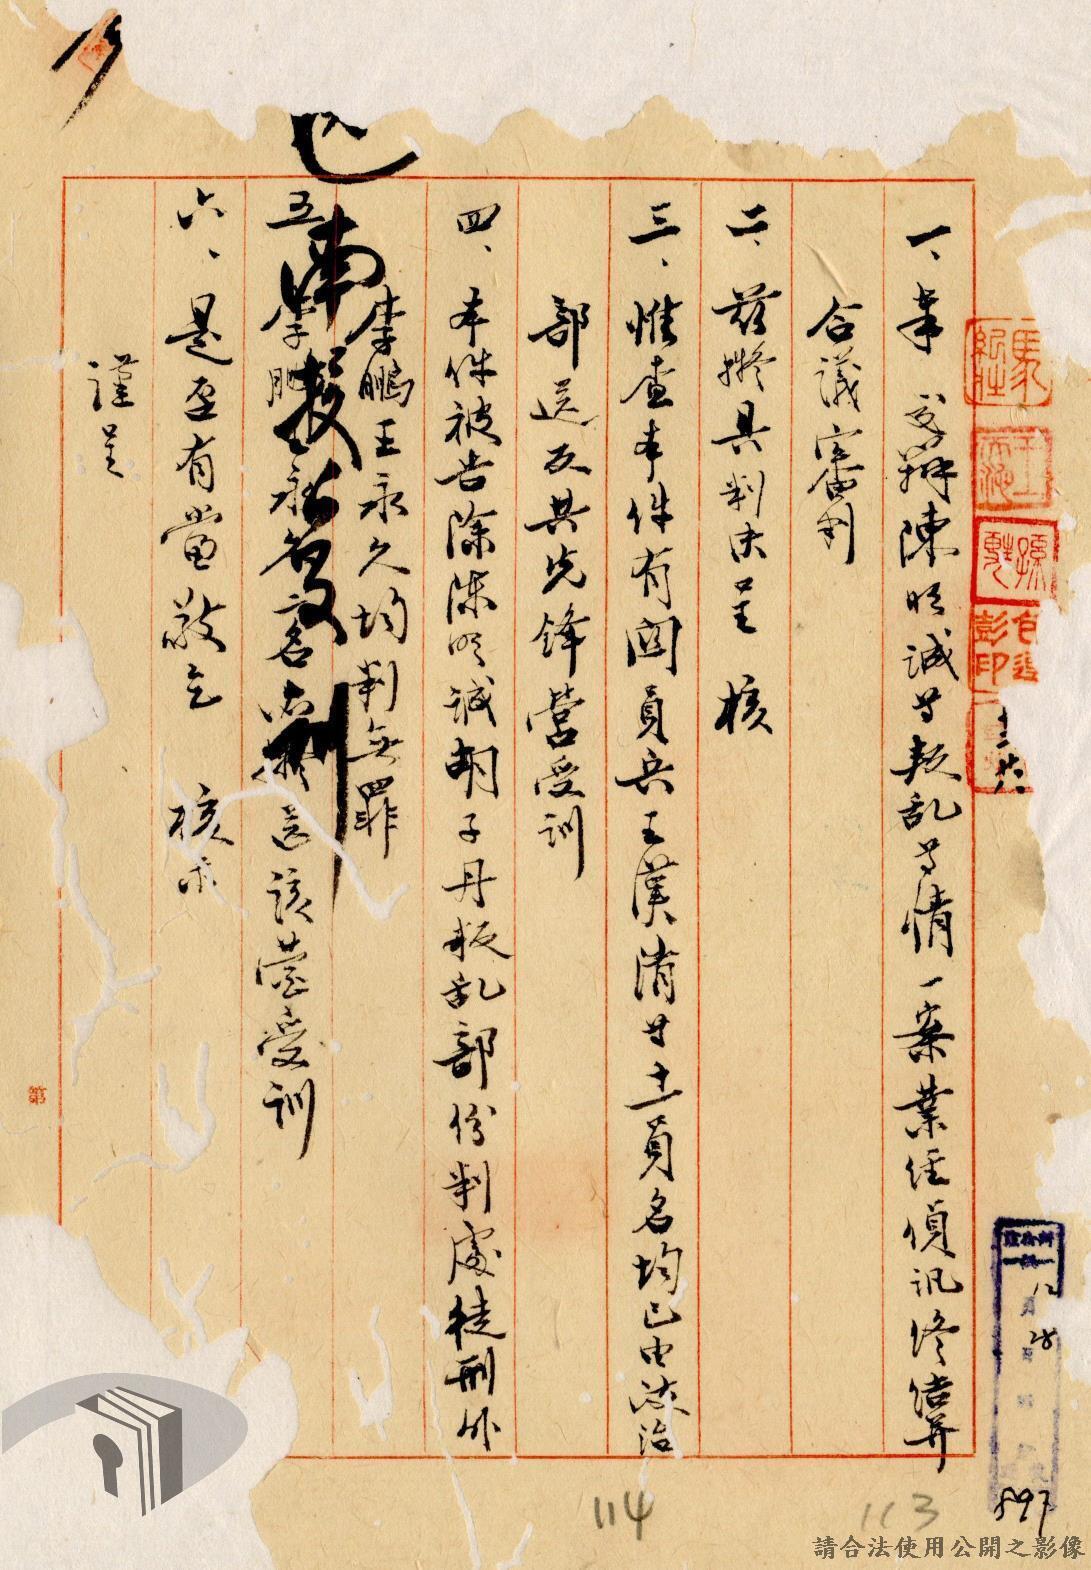 一、奉 交辦陳明誠等叛乱等情一案業經偵訊終結并
合議審判
二、茲擬具判決呈 核
三、惟查本件有関員兵王漢清等十一員名均已由政治
部送反共先鋒營受訓
四、本件被告除陳明誠胡子丹叛乱部份判處徒刑外
李鵬王永久均判無罪
五、李鵬王永久二名亦擬送該營受訓
六、是否有當敬乞 核示
謹呈
第
12 28
897
114
113
請合法使用公開之影像